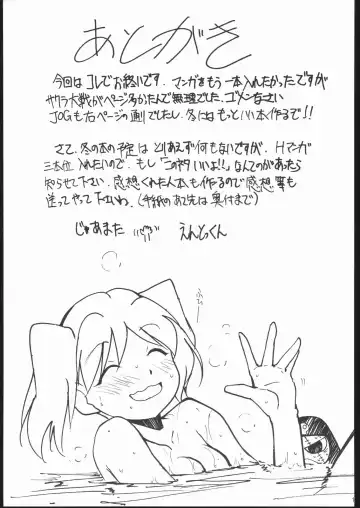 あとがき
今回はコレでお終いです。マンガをもう一本入れたかったですが
サクラ大戦がページ多かったんで無理でした、ゴメンなさい
JOGも右ページの通りでしたし、冬にはもっといい本作るで!!
さて、冬の本の予定はとりあえず何もないですが、Hマンガ
三本位入れたいので、もし「このネタいいよ!!」なんてのがあったら
知らせて下さい。感想くれた人本も作るので感想等も
送ってやって下さいわ。(手紙のあて先は奥付まで)
じゃあまた えんどっくん